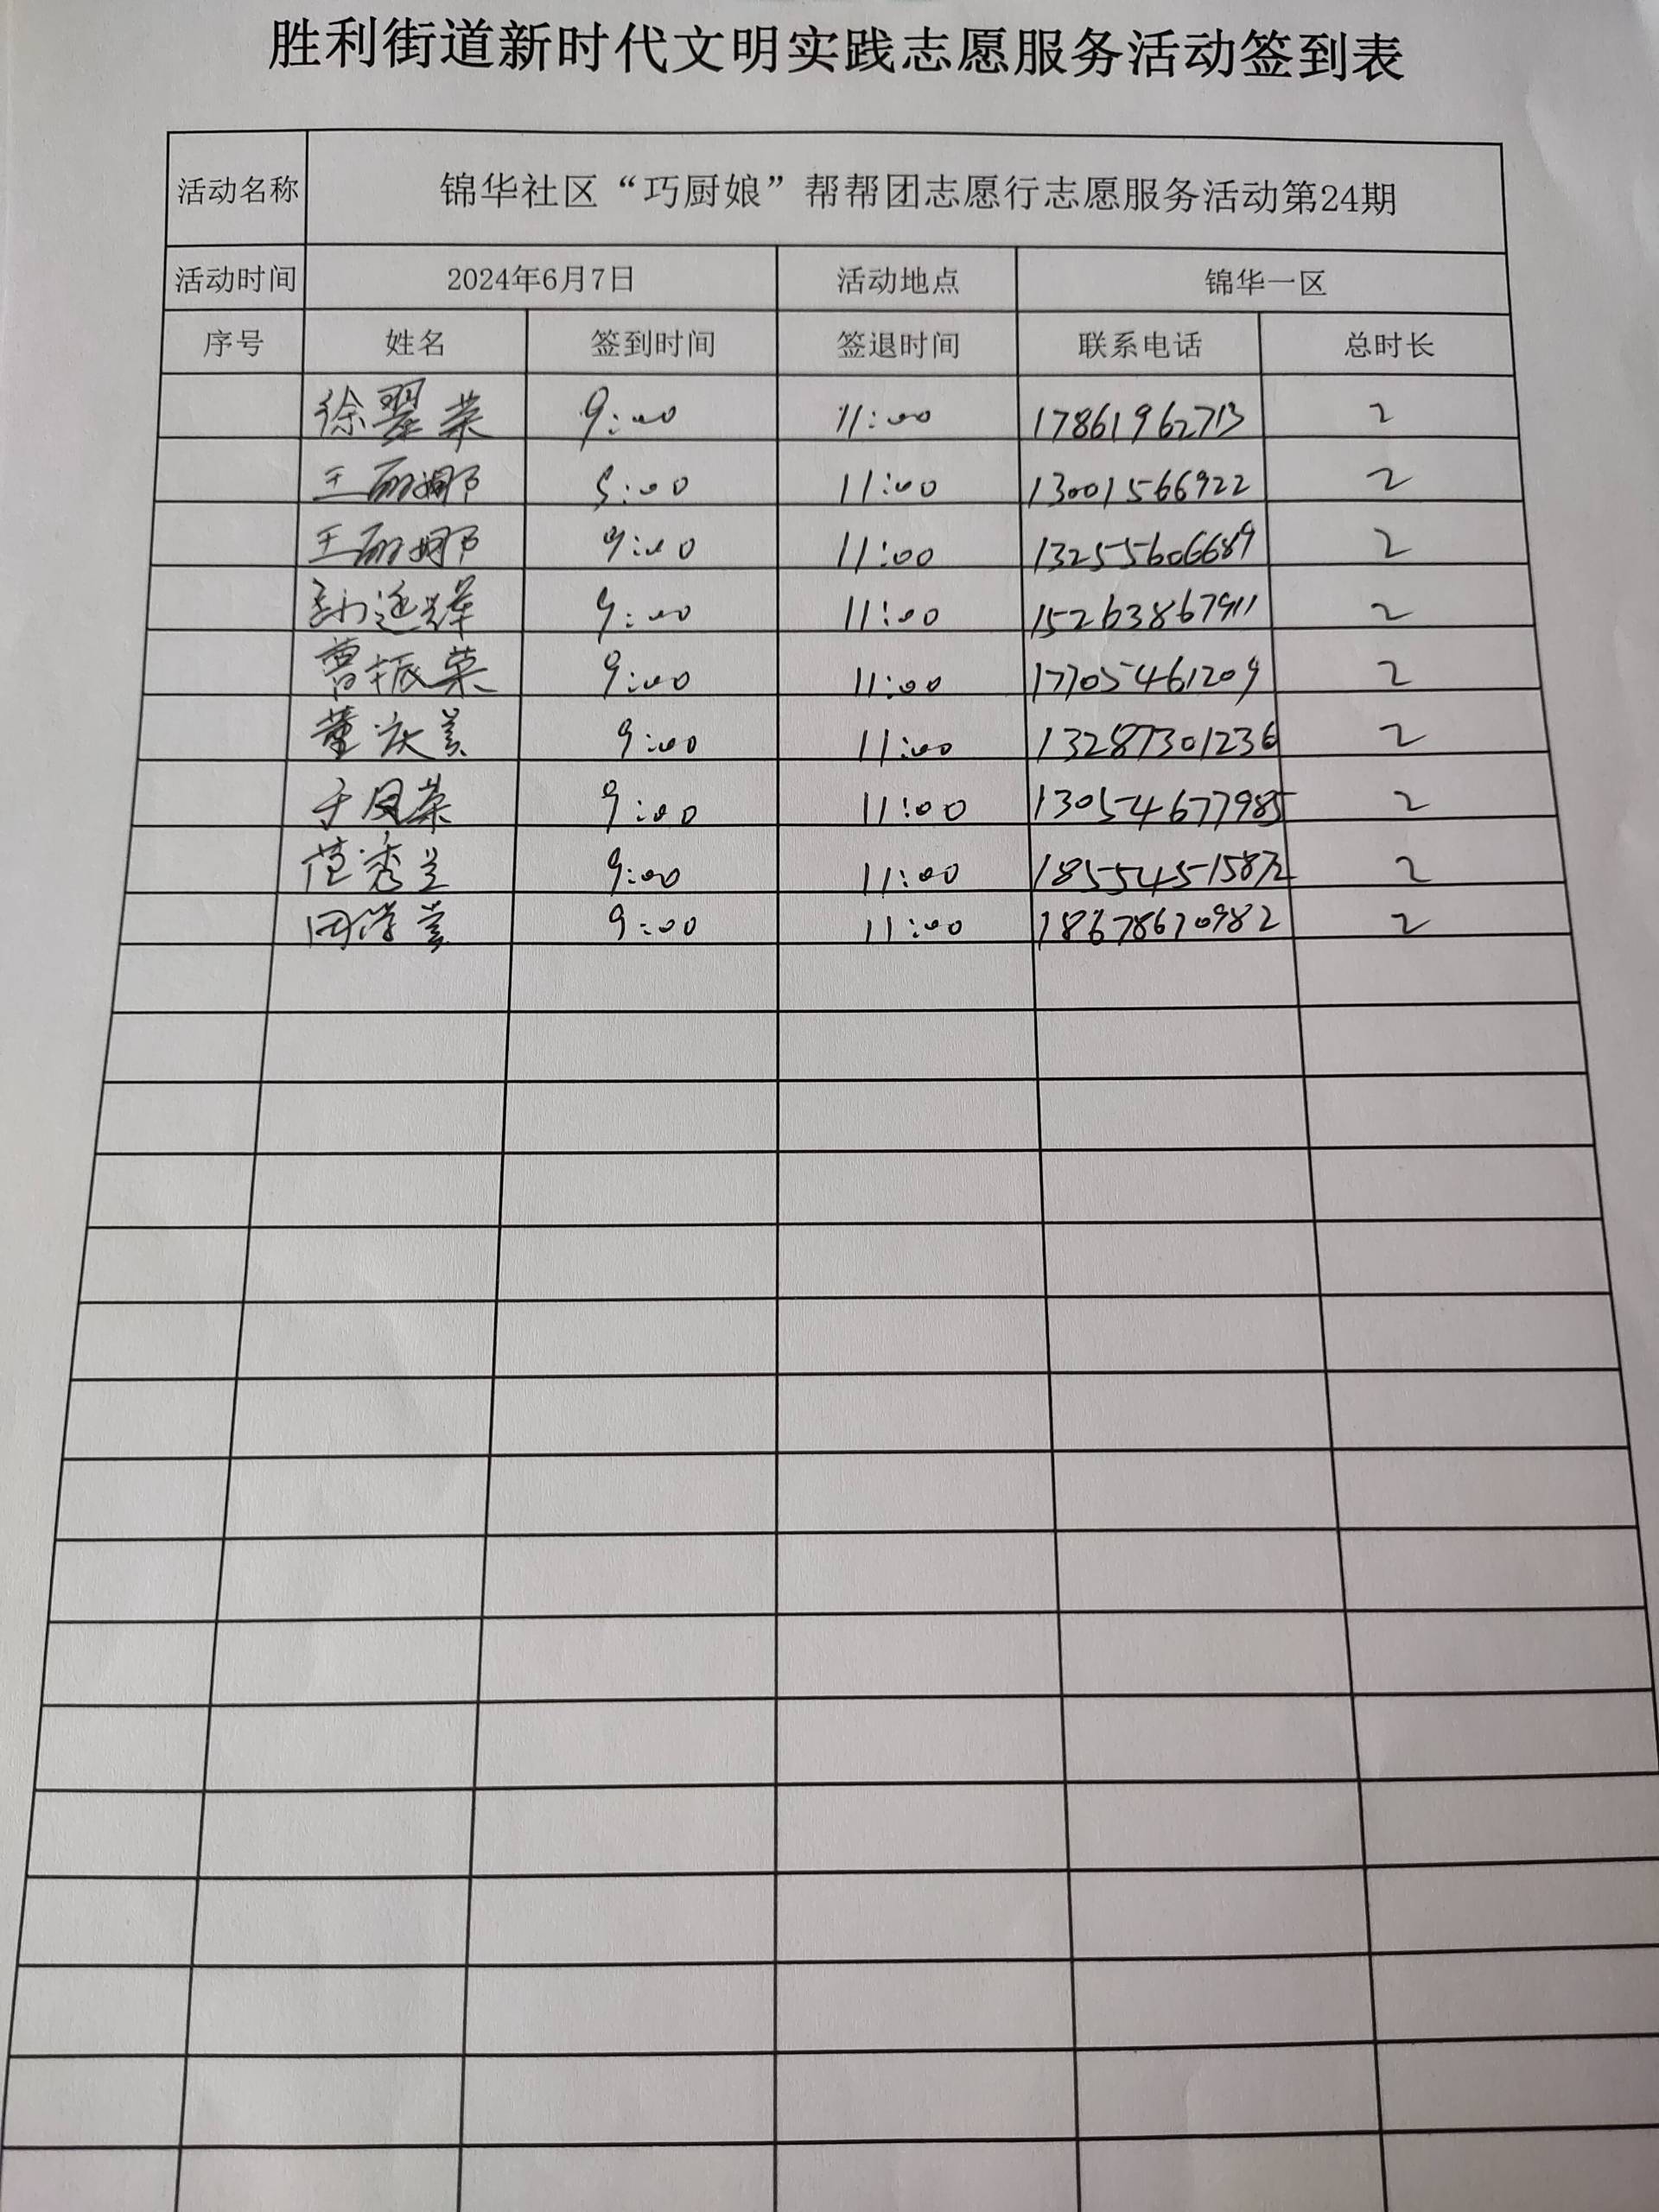 胜利街道新时代文明实践志愿服务活动签到表
活动名称 锦华社区“巧厨娘”帮帮团志愿行志愿服务活动第24期
活动时间 2024年6月7日 活动地点 锦华一区
序号 姓名 签到时间 签退时间 联系电话 总时长
徐翠荣 9:00 11:00 17861962713 2
王丽娜 9:00 11:00 13001566922 2
王丽娜 9:00 11:00 13255606689 2
孙连辉 9:00 11:00 15263867911 2
曹振荣 9:00 11:00 17705461209 2
董庆美 9:00 11:00 13287301236 2
于凤荣 9:00 11:00 13054677985 2
范秀兰 9:00 11:00 18554515872 2
田学 9:00 11:00 18678670982 2